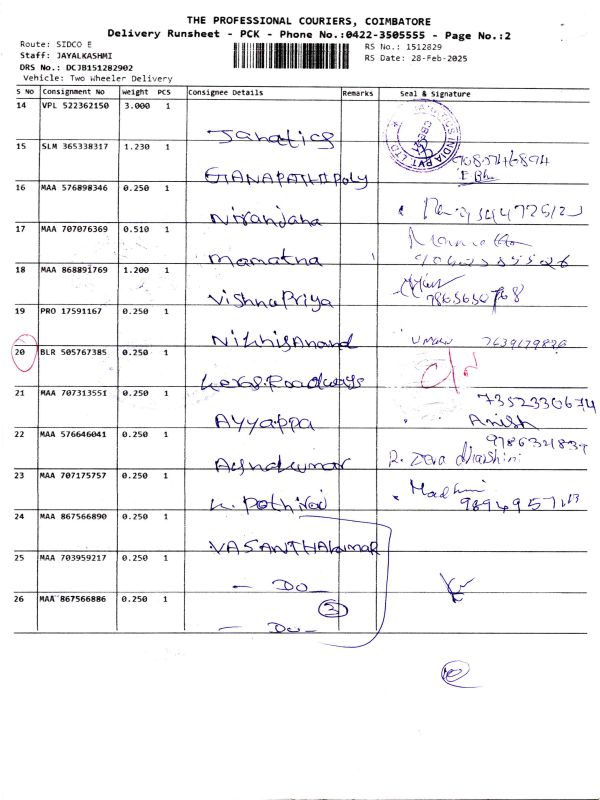 THE PROFESSIONAL COURIERS, COIMBATORE
Delivery Runsheet - PCK - Phone No.:0422-3505555 - Page No.:2
Route: SIDCO E
RS No.: 1512829
Staff: JAYALKASHMI
RS Date: 28-Feb-2025
DRS No.: DCJB151282902
Vehicle: Two Wheeler Delivery
S No Consignment No Weight PCS Consignee Details Remarks Seal & Signature
14 VPL 522362150 3.000 1
Janatics
15 SLM 365338317 1.230 1
GANAPATHI Poly
16 MAA 576898346 0.250 1
Niranjana
17 MAA 707076369 0.510 1
mamatha
18 MAA 868891769 1.200 1
VishnuPriya 7865650768
19 PRO 17591167 0.250 1
20 BLR 505767385 0.250 1
Roadways
21 MAA 707313551 0.250 1 7352330674
Ayyappa Anish
22 MAA 576646041 0.250 1
23 MAA 707175757 0.250 1
Madhu
24 MAA 867566890 0.250 1
VASANTHAkumar
25 MAA 703959217 0.250 1
- Do -
26 MAA 867566886 0.250 1 3
- Do -